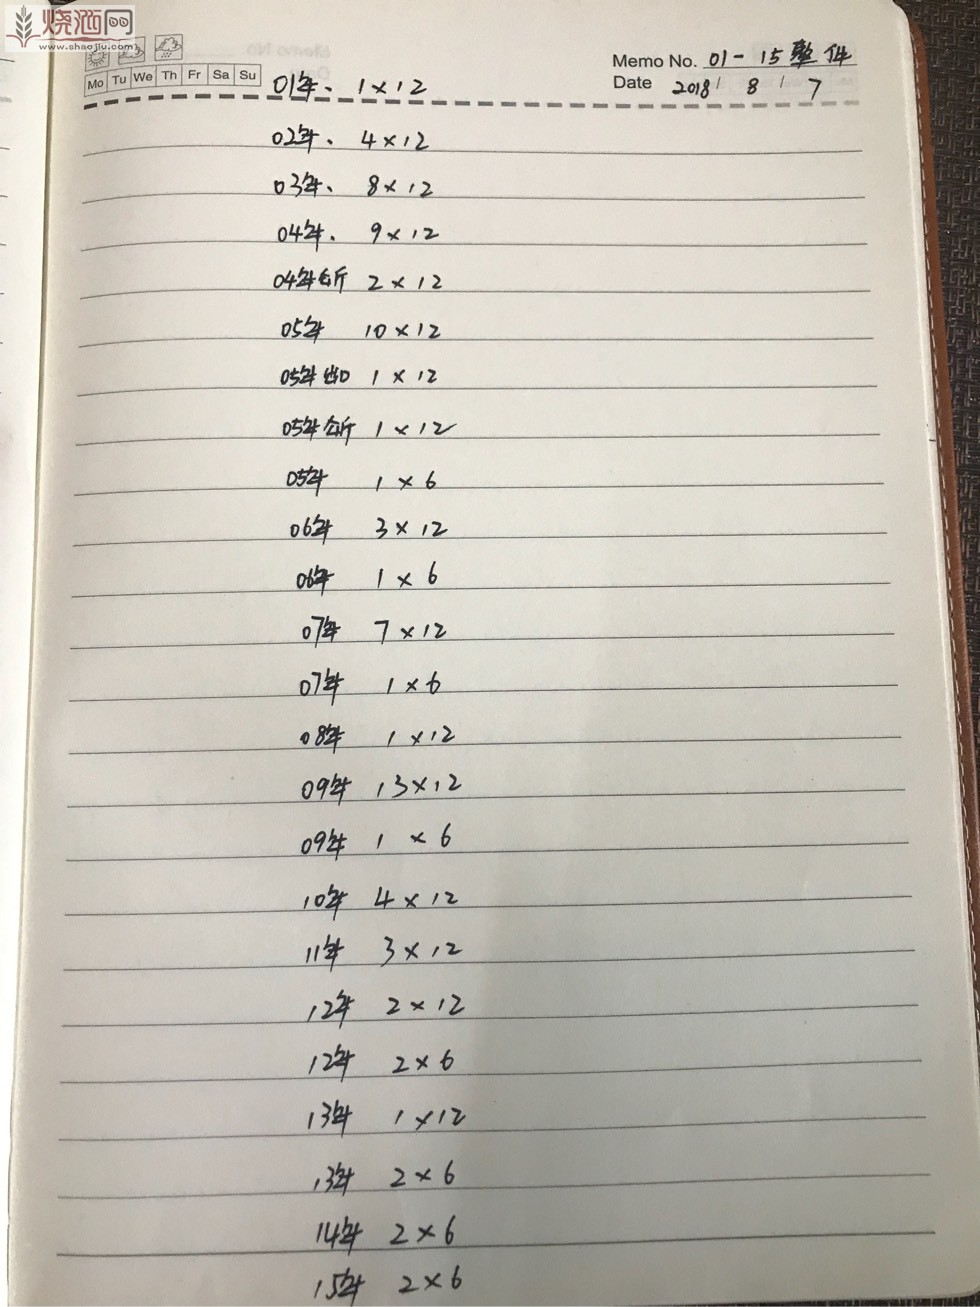 烧酒网
www.shaojiu.com
Memo No. 01-15整件
Mo Tu We Th Fr Sa Su
Date 2018/ 8 / 7
01年、 1×12
02年、 4×12
03年、 8×12
04年、 9×12
04年公斤 2×12
05年 10×12
05年出口 1×12
05年公斤 1×12
05年 1×6
06年 3×12
06年 1×6
07年 7×12
07年 1×6
08年 1×12
09年 13×12
09年 1×6
10年 4×12
11年 3×12
12年 2×12
12年 2×6
13年 1×12
13年 2×6
14年 2×6
15年 2×6